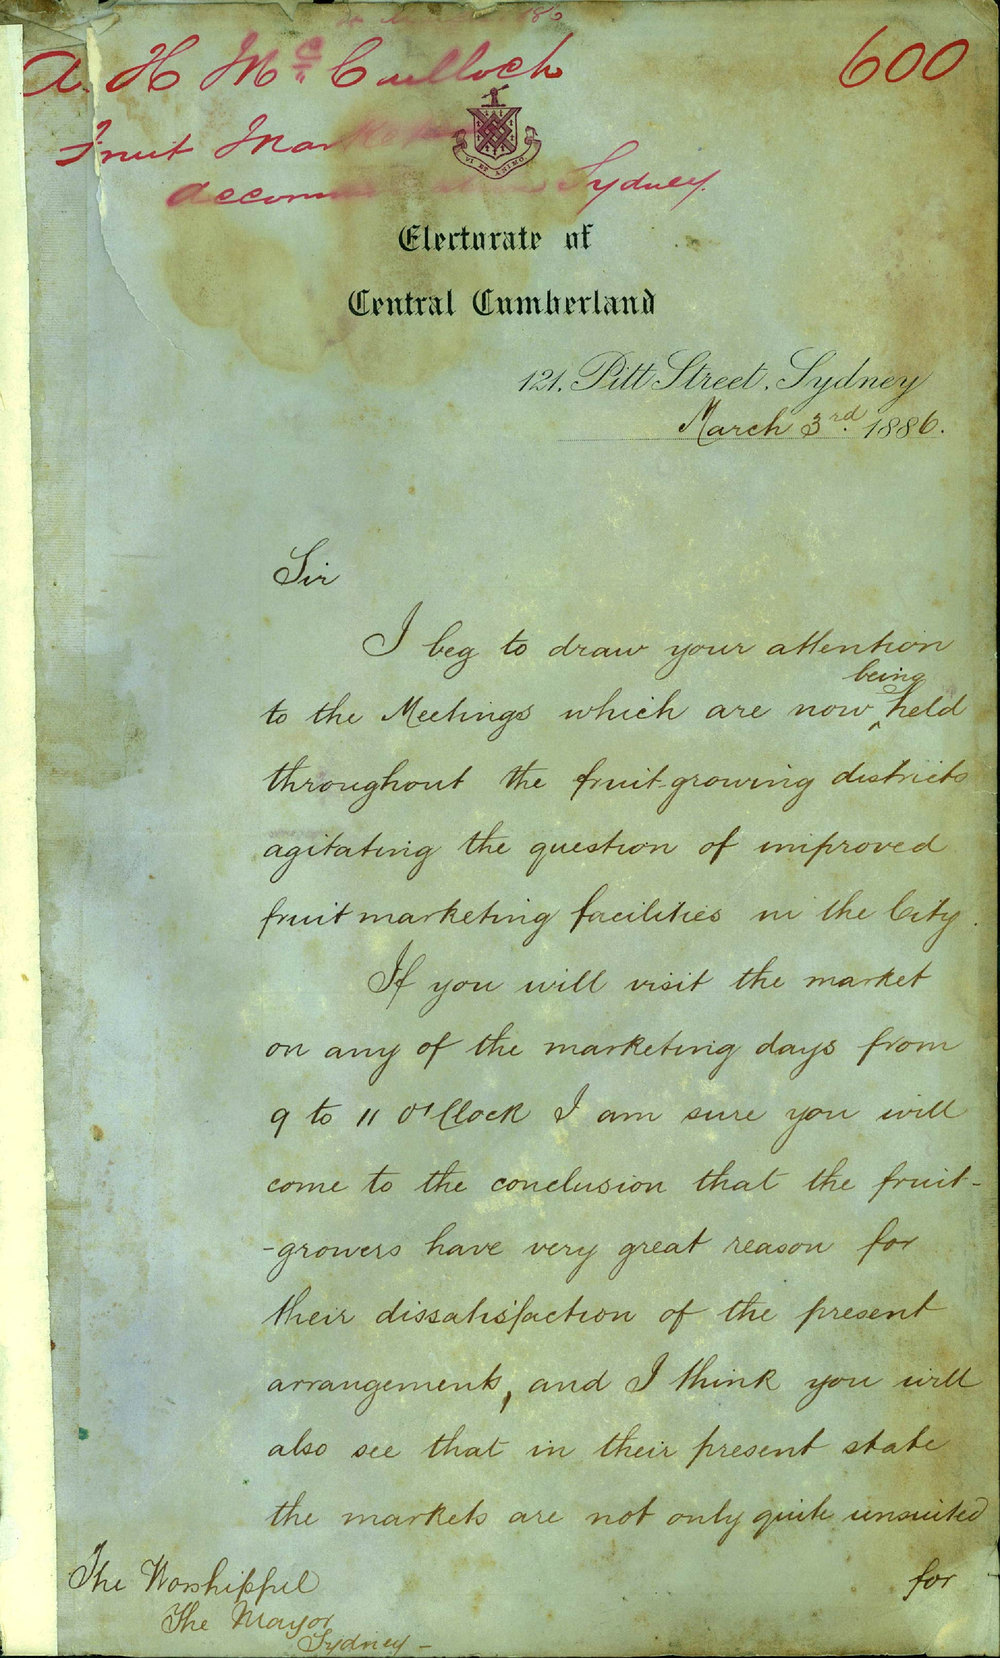 A. H McCulloch
600
Fruit Market
Sydney.
VI ET ANIMO
Electorate of
Central Cumberland
121, Pitt Street, Sydney
March 3rd. 1886.
Sir
I beg to draw your attention
being
to the Meetings which are now ^ held
throughout the fruit-growing districts
agitating the question of improved
fruit marketing facilities in the City.
If you will visit the market
on any of the marketing days from
9 to 11 O'Clock I am sure you will
come to the conclusion that the fruit-
-growers have very great reason for
their dissatisfaction of the present
arrangements, and I think you will
also see that in their present state
the markets are not only quite unsuited
for
The Worshipful
The Mayor
Sydney -